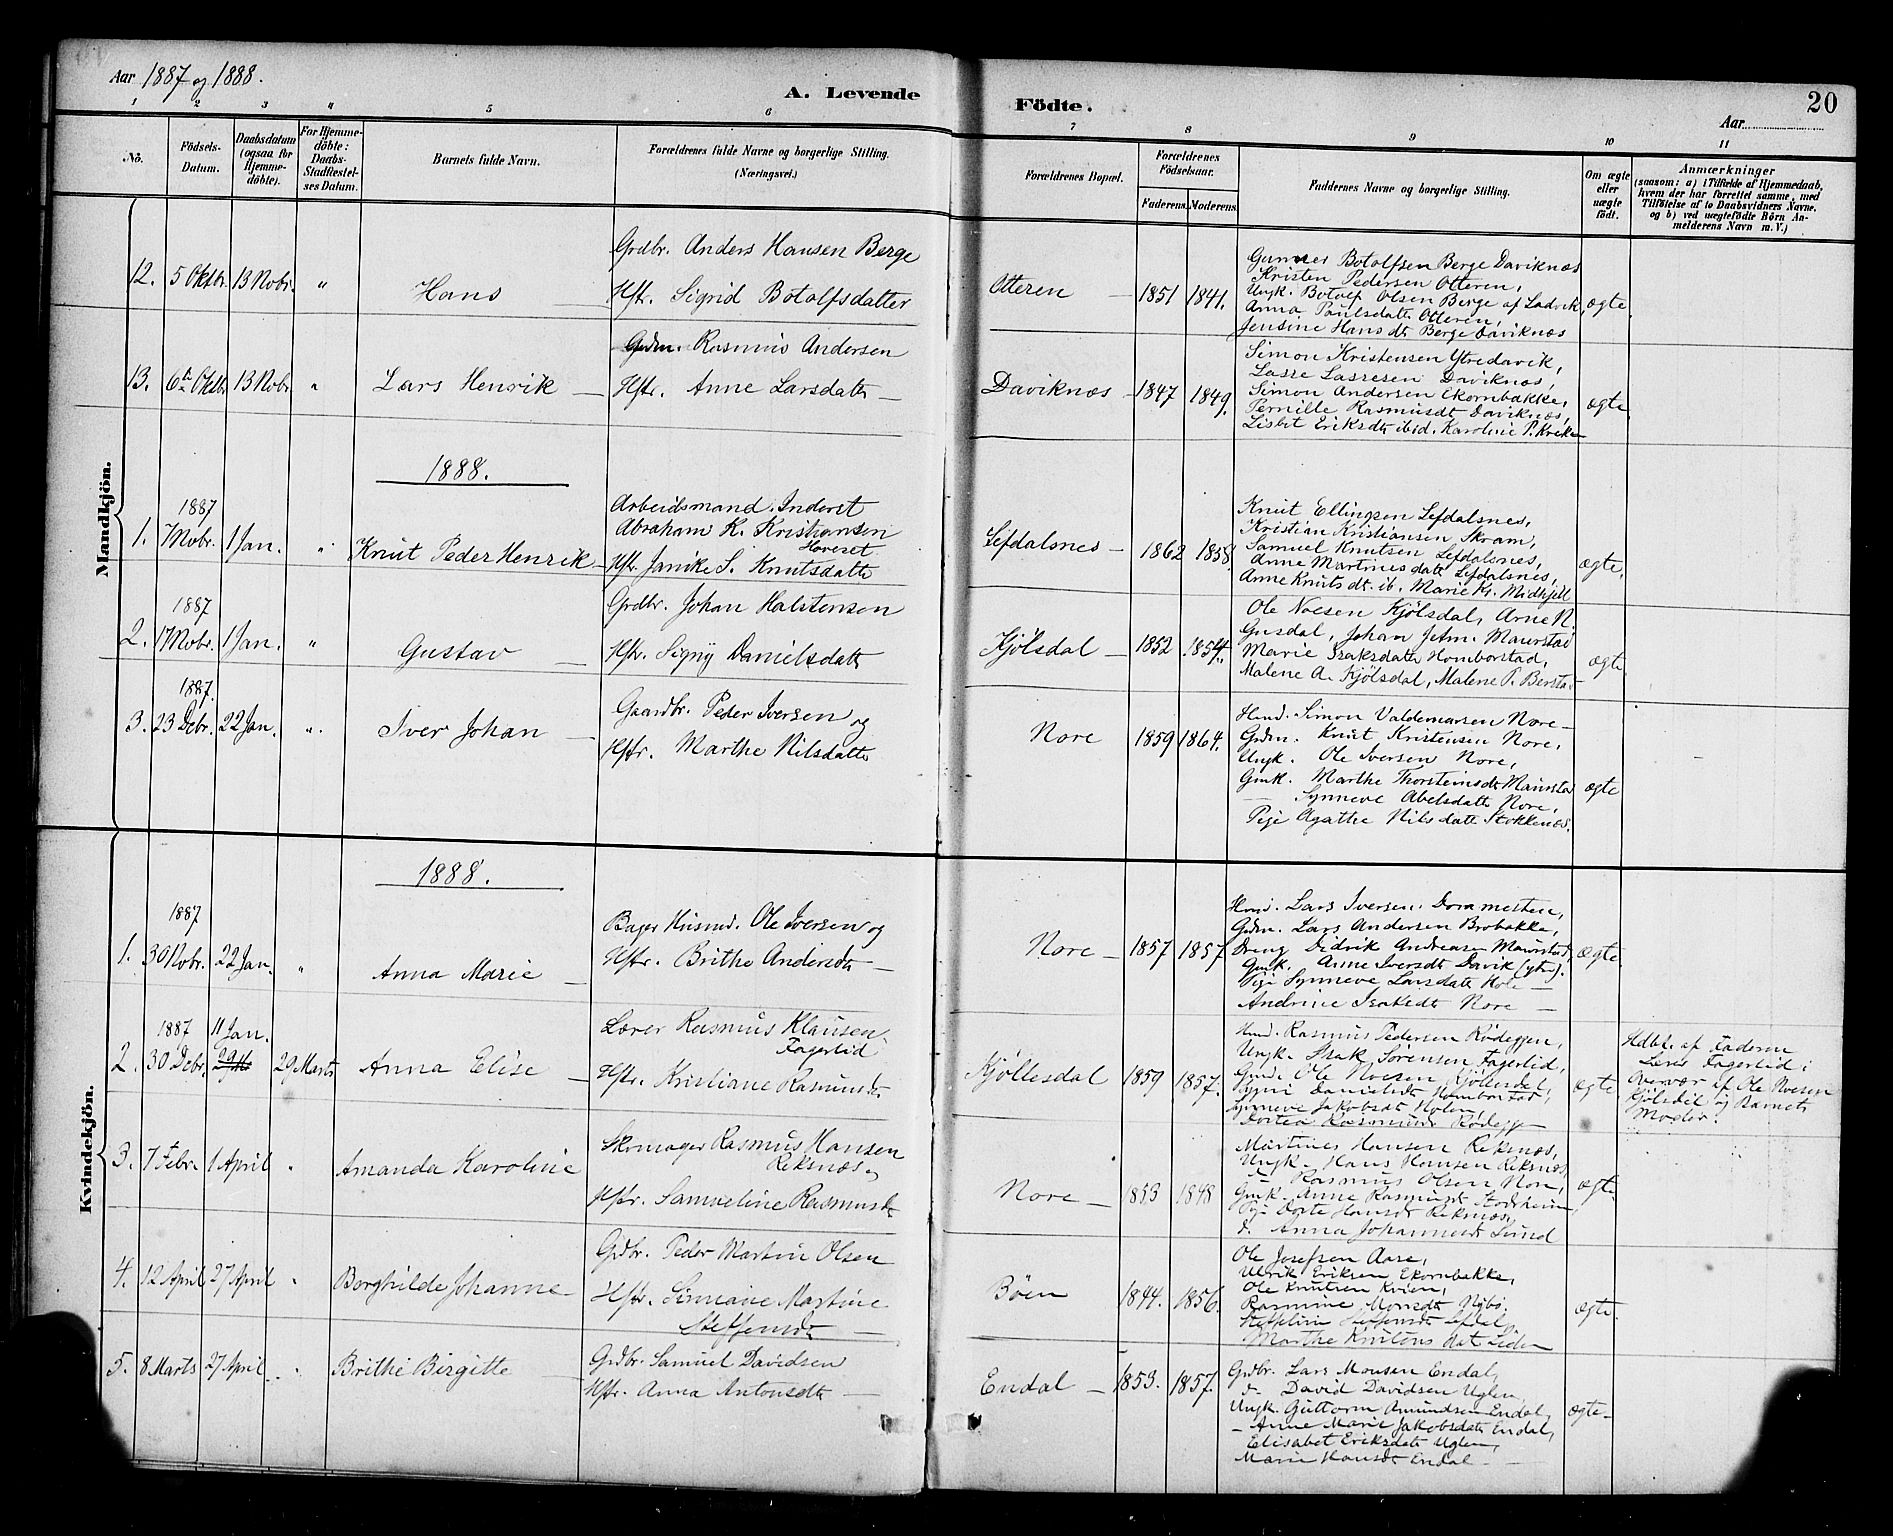 Aar 1887 og 1888.
A. Levende Födte.
20
Aar
1 2 3 " 5 6 7 8 9 10 11
No.
Födsels-Datum.
Daabsdatum (ogsaa for Hjemme-döbte).
For Hjemme-döbte: Daabs-Stadfæstel-ses Datum.
Barnets fulde Navn.
Forældrenes fulde Navne og borgerlige Stilling.
(Næringsvei.)
Forældrenes Bopæl.
Forældrenes Födselsaar.
Faderens. Moderens.
Faddernes Navne og borgerlige Stilling.
Om ægte eller uægte födt.
Anmærkninger
(saasom: a) i Tilfælde af Hjemmedaab,
hvem der har forrettet samme, med
Tilföielse af to Daabsvidners Navne,
og b) ved uægtefödte Börn An-
melderens Navn m. V.)
Mandkjön.
12. 5 Oktbr. 13 Nobr. " Hans
Grdbr. Anders Hansen Berge
Hstr. Sigrid Botolfsdatter
Otteren 1851 1841.
Gunner Botolfsen Berge Daviknæs
Kristen Pedersen Otteren,
Ungk. Botolf Olsen Berge af Ladvik,
Anna Paulsdatt Otteren,
Jensine Hansdt Berge Daviknæs
ægte.
13. 6te Oktbr 13 Nobr. " Lars Henrik
Grdm. Rasmus Andersen
Hstr. Anne Larsdatt
Daviknæs 1847 1849.
Simon Kristensen Ytredavik,
Lasse Lassesen Daviknæs,
Simon Andersen Ekornbakke,
Pernille Rasmusdt Daviknæs,
Lisbet Eriksdt ibid. Karoline P. Kreken
ægte.
1888.
1. 1887 7 Nobr. 1 Jan. " Knut Peder Henrik
Arbeidsmand. Inderst
Abraham K. Kristiansen
Haveset
Hstr. Janike S. Knutsdatt
Lefdalsnes 1862 1858.
Knut Ellingsen Lefdalsnes,
Kristian Kristiansen Skram,
Samuel Knutsen Lefdalsnes,
Anne Martinesdatt Lefdalsnes,
Anne Knutsdt. ib. Marie K. Midhjell
ægte.
2. 1887 17 Nobr. 1 Jan. " Gustav
Grdbr. Johan Halstensen
Hstr. Signy Danielsdatt
Kjölsdal 1852 1854.
Ole Noesen Kjölsdal, Arne N.
Gusdal, Johan Jetm. Maurstad
Marie Isaksdatt Homborstad,
Malene A. Kjölsdal, Malene P. Berstad
ægte
3. 1887. 23 Debr. 22 Jan. " Iver Johan
Gaardbr. Peder Iversen og
Hstr. Marthe Nilsdatt
Nore 1859 1864.
Husd. Simon Valdemarsen Nore
Grdm. Knut Kristensen Nore,
Ungk. Ole Iversen Nore,
Gmk. Marthe Thorsteinsdt Maurstad
Synneve Abelsdatt Nore,
Pige Agathe Nilsdatt Stokkenæs.
ægte
Kvindekjön.
1888.
1. 1887 30 Nobr. 22 Jan. " Anna Marie
Husmd. Ole Iversen og
Hstr. Brithe Andersdt
Nore 1857 1857
Husd. Lars Iversen
Grdm. Lars Andersen Brobakke,
Dreng Didrik Andreasen Maurstad,
Gmk. Anne Iversdt Davik (ytre).
Pige Synneve Larsdatt Hole
Andrine Isaksdt Nore
ægte.
2. 1887 30 Debr. 11 Jan. 29 Marts Anna Elise
Lærer Rasmus Klausen
Fagerlid
Hstr. Kristiane Rasmusdt
Kjöllesdal 1859 1857.
Husd. Rasmus Pedersen Rödeggen,
Ungk. Isak Sörensen Fagerlid,
Gmd. Ole Noesen Kjöllesdal,
Signi Danielsdt Homborstad,
Synneve Jakobsdt Holen,
Dortea Rasmusdt Rödegg
ægte
Hdbt. af Faderen
Lærer Fagerlid i
Overvær af Ole Noesen
Kjölsdal og Barnets
Moder.
3. 7 Febr. 1 April " Amanda Karoline
Skomager Rasmus Hansen
Reksnæs
Hstr. Samueline Rasmusdt
Nore 1853 1848
Martines Hansen Reksnæs,
Ungk. Hans Hansen Reksnæs,
Rasmus Olsen Nore,
Gmk. Anne Rasmusdt Stodheim,
Pige Dorte Hansdt Reksnæs,
d. Anna Johannesdt
ægte.
4. 12 April 27 April " Borghilde Johanne
Grdbr. Peder Martin Olsen
Hstr. Simiane Martine
Steffensdt
Böen 1844. 1856.
Ole Josefsen Aase,
Ulrik Eriksen Ekornbakke,
Ole Knutsen Kvien,
Rasmine Monsdt Nybö.
Steffensdt Lefdal,
Marthe Knutens dat Liden
ægte.
5. 8 Marts 27 April " Brithe Birgitte
Grdbr. Samuel Davidsen
Hstr. Anna Antonsdt
Endal 1853. 1857.
Grdbr. Lars Monsen Endal,
d. David Davidsen Uglen,
Ungk. Guttorm Amundsen Endal,
Anne Marie Jakobsdatt Endal,
Elisabet Eriksdatt Uglen,
Marie Hansdt Endal
ægte